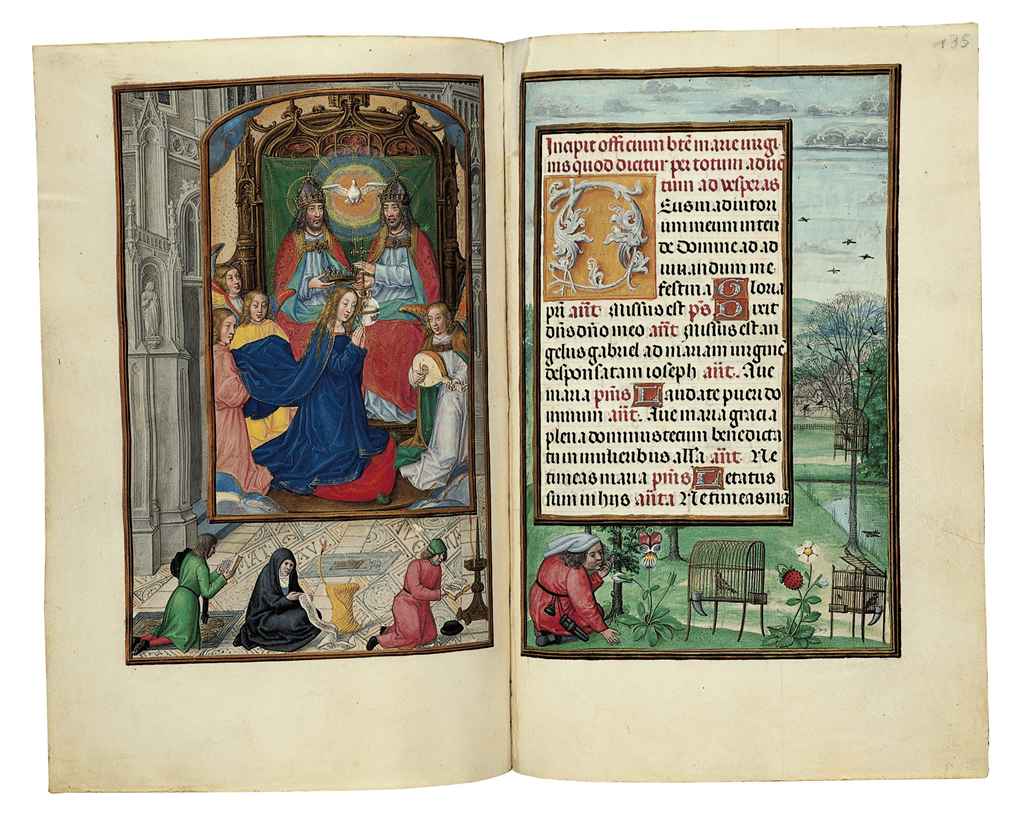 135
Incipit officium bt̄e marie virgi
nis quod dicitur per totum aduē
tum ad vesperas
Deus in adiutori
um meum inten
de Domine ad ad
iuuandum me
festina Gloria
pr̄i añt. Missus est ps̄ Dixit
dn̄s dn̄o meo añt Missus est an
gelus gabriel ad mariam virginē
desponsatam ioseph añt. Aue
maria pm̄s Laudate pueri do
minum añt. Aue maria gracia
plena dominus tecum benedicta
tu in mulieribus all'a añt Ne
timeas maria pm̄s Letatus
sum in hijs añt̄a Ne timeas ma